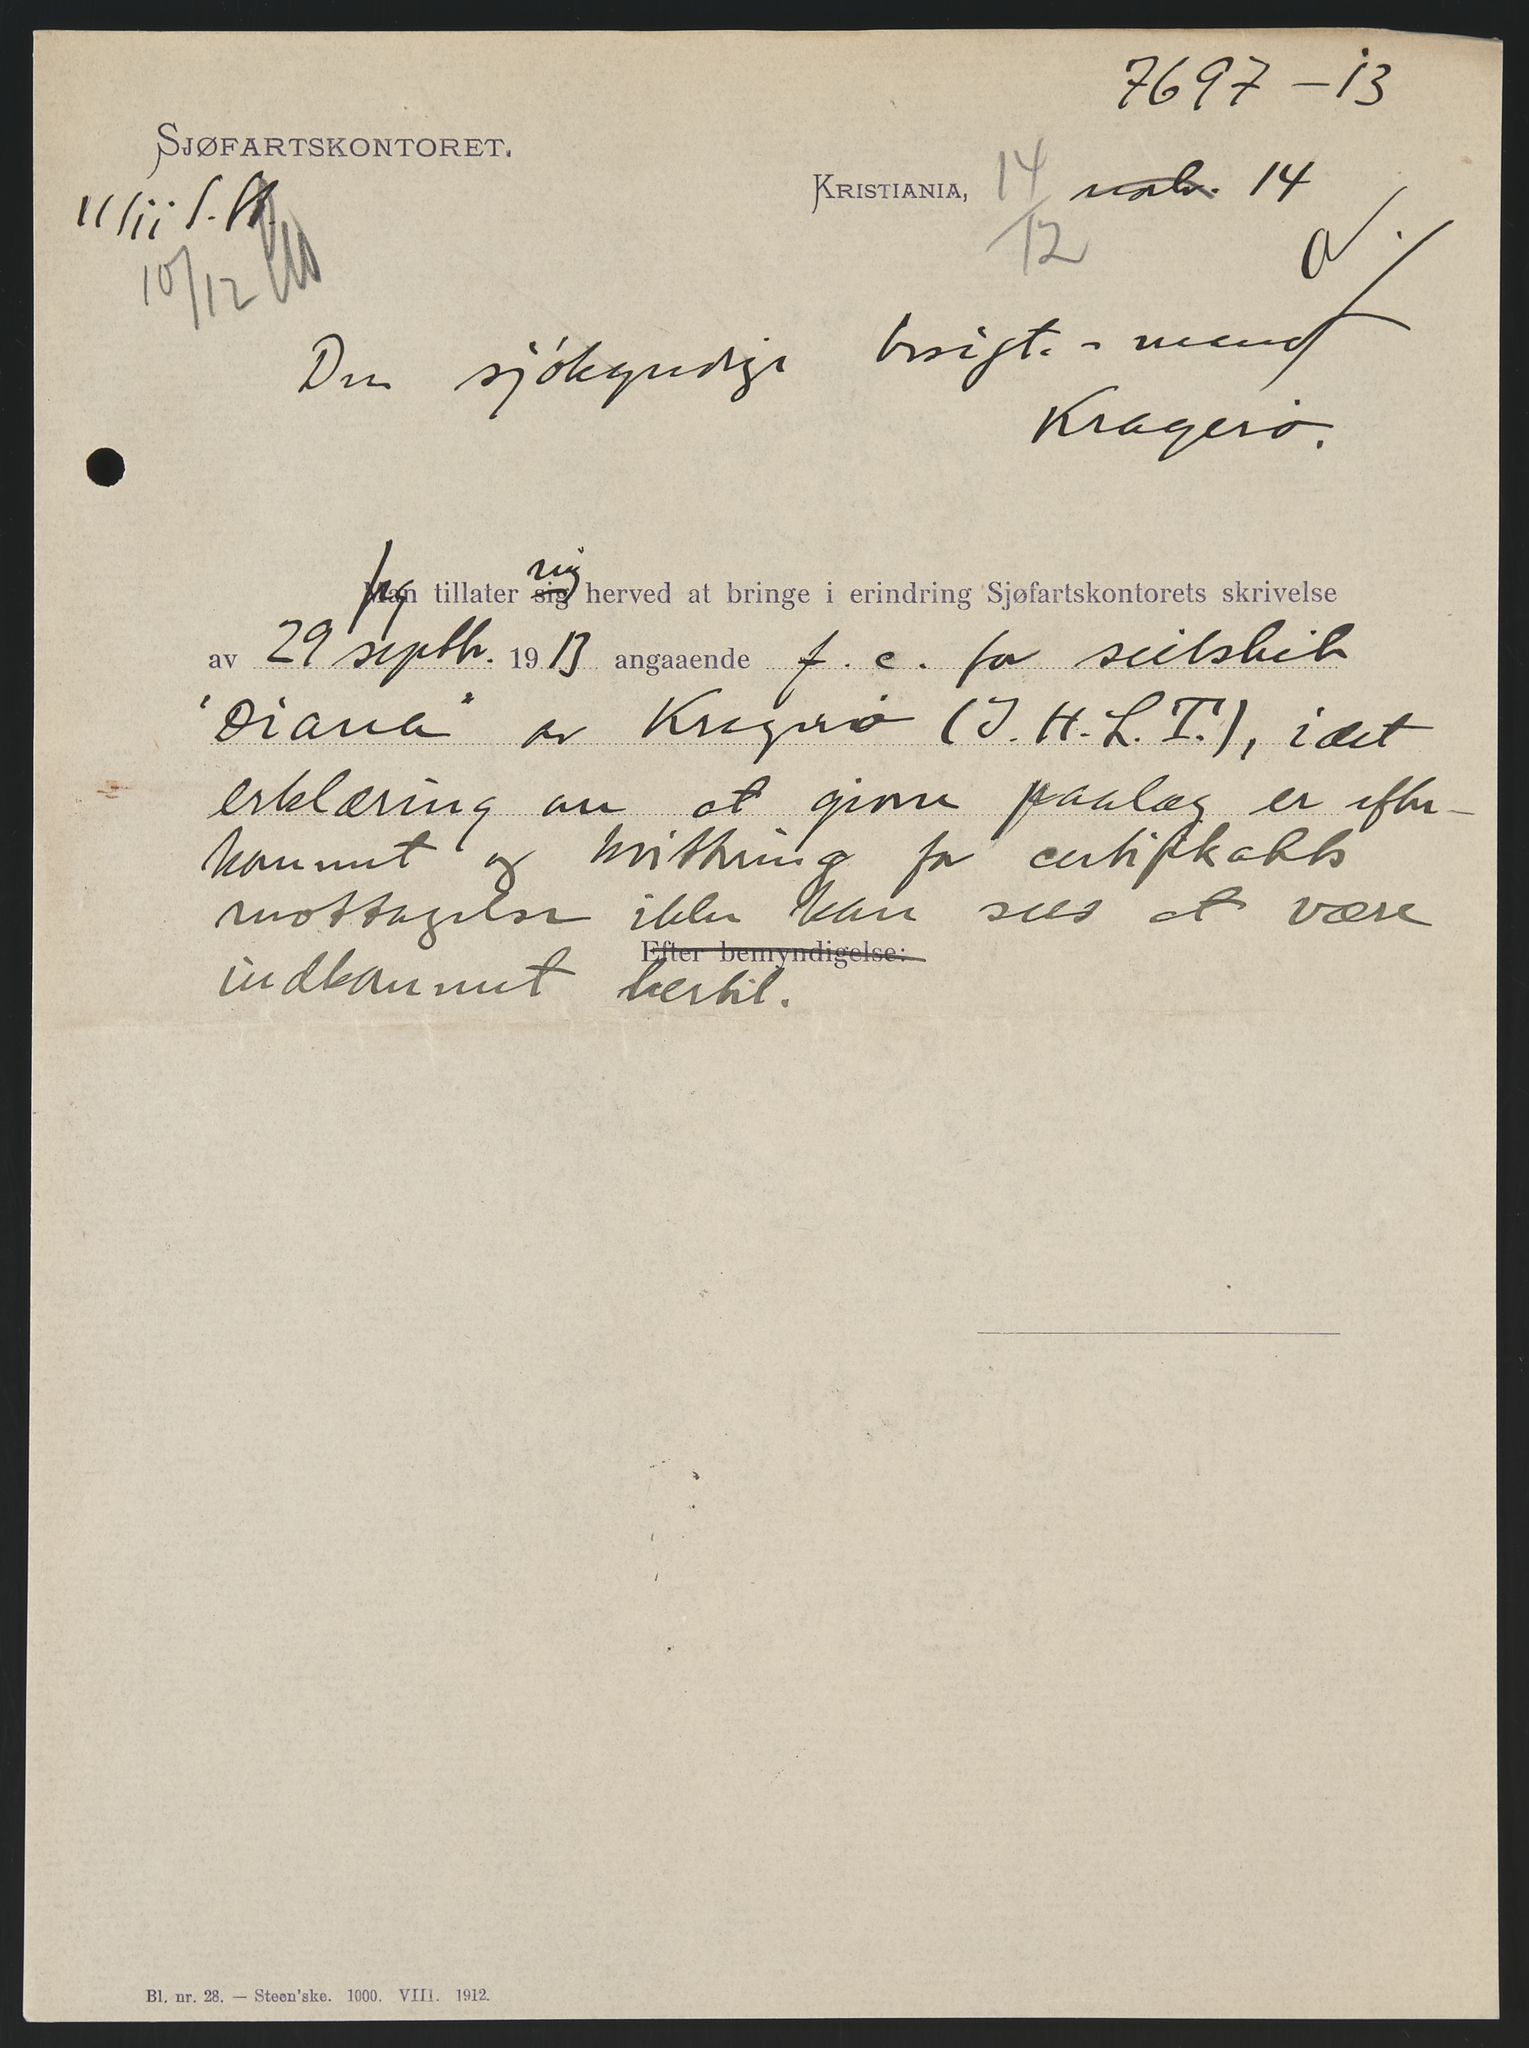 7697 - 13
SJØFARTSKONTORET.
11/11
10/12
KRISTIANIA, 14/12 novbr. 14
Den sjökyndige besigt. - mand
Kragerö.
Jeg mig
Man tillater sig herved at bringe i erindring Sjøfartskontorets skrivelse
av 29 septbr. 1913 angaaende f. c. for seilskib
"Diana" av Kragerö (J. H. L. T.), idet
erklæring om at givne paalæg er efter-
kommet og kvittering for certifikatets
mottagelse ikke kan sees at være
Efter bemyndigelse:
indkommet hertil.
Bl. nr. 28. — Steen'ske. 1000. VIII. 1912.